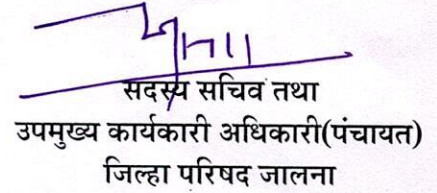 सदस्य सचिव तथा
उपमुख्य कार्यकारी अधिकारी(पंचायत)
जिल्हा परिषद जालना